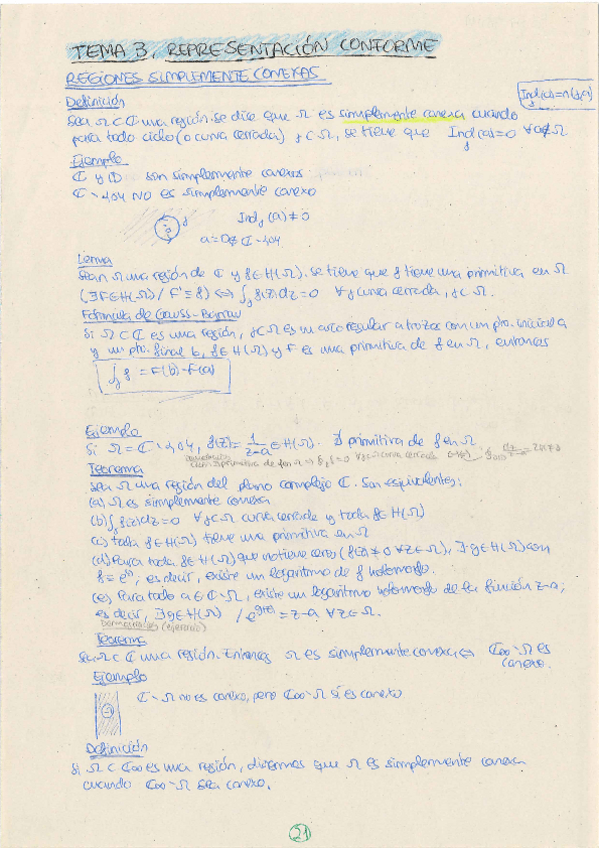 TEMA 3. REPRESENTACIÓN CONFORME
REGIONES SIMPLEMENTE CONEXAS
Definición
Ind_γ(a)=n(γ,a)
Sea Ω ⊂ ℂ una región. se dice que Ω es simplemente conexa cuando
para todo ciclo (o curva cerrada) γ ⊂ Ω, se tiene que Ind_γ(a)=0 ∀a∉Ω
Ejemplo
ℂ y 𝔻 son simplemente conexos
ℂ∖{0} NO es simplemente conexo
Ind_γ(a)≠0
a=0∉ ℂ∖{0}
Lema
Sean Ω una región de ℂ y f∈H(Ω). se tiene que f tiene una primitiva en Ω
(∃F∈H(Ω)/ F'=f) ⟺ ∫_γ f(z)dz=0 ∀γ curva cerrada, γ⊂Ω.
Fórmula de Gauss-Barrow
Si Ω⊂ℂ es una región, γ⊂Ω es un arco regular a trozos con un pto. inicial a
y un pto. final b, f∈H(Ω) y F es una primitiva de f en Ω, entonces
∫_γ f = F(b)-F(a)
Ejemplo
Si Ω=ℂ∖{0}, f(z)=1/(z-a)∈H(Ω). ∄ primitiva de f en Ω
Teorema
Sea Ω una región del plano complejo ℂ. Son equivalentes:
(a) Ω es simplemente conexa
(b) ∫_γ f(z)dz=0 ∀γ⊂Ω curva cerrada y toda f∈H(Ω)
(c) toda f∈H(Ω) tiene una primitiva en Ω
(d) Para toda f∈H(Ω) que no tiene ceros (f(z)≠0 ∀z∈Ω), ∃g∈H(Ω) con
f=e^g, es decir, existe un logaritmo de f holomorfo.
(e) Para todo a∈ℂ∖Ω, existe un logaritmo holomorfo de la función z-a;
es decir, ∃g∈H(Ω) / e^g(z)=z-a ∀z∈Ω.
Teorema
Sea Ω⊂ℂ una región. Entonces Ω es simplemente conexa ⟺ ℂ∞∖Ω es
conexo.
Ejemplo
ℂ∖Ω no es conexo, pero ℂ∞∖Ω sí es conexo
Definición
Si Ω⊂ℂ∞ es una región, diremos que Ω es simplemente conexa
cuando ℂ∞∖Ω sea conexo.
21